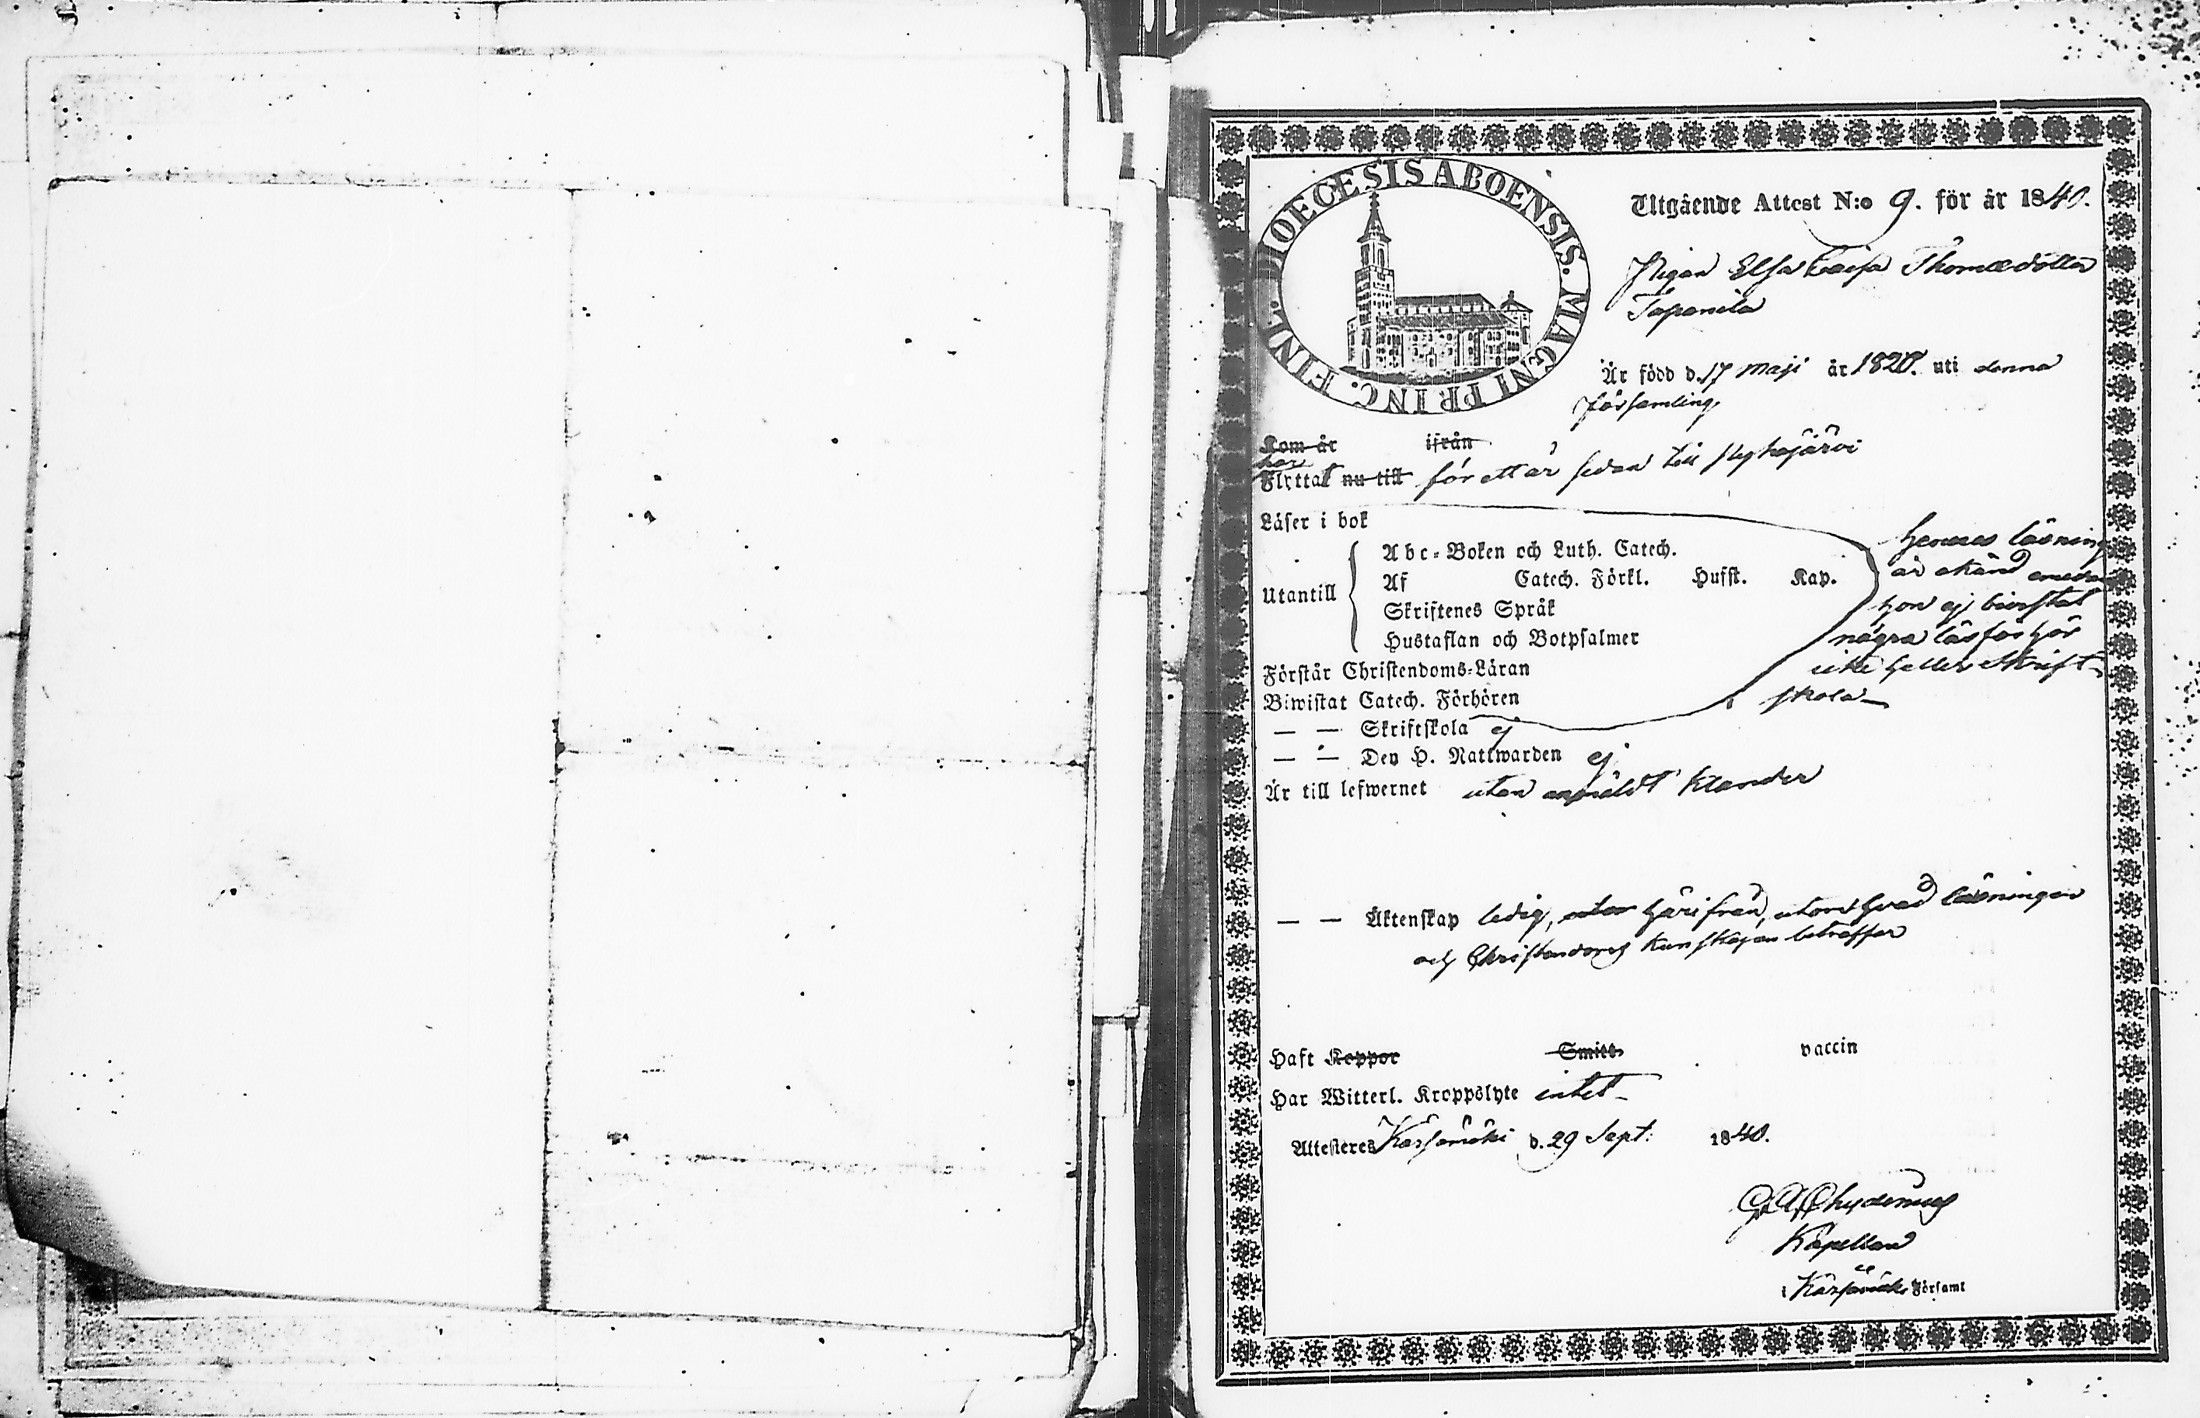 DIOECESIS ABOENSIS. MAGNI PRINC. FINL.
Utgående Attest N:o 9. för år 1840.
Pigan Elsa Caisa Thomædotter
Tapanila
Är född d. 17 Maji år 1820. uti denna
församling
Kom år ifrån
har
Flyttat nu till för ett år sedan till Pyhäjärvi
Läser i bok
Utantill
Abc-Boken och Luth. Catech.
Af Catech. Förkl. Hufst. Kap.
Skriftenes Språk
Hustaflan och Botpsalmer
Hennes läsning
är okänd emedan
hon ej bivistat
några läsförhör
icke heller Skrift-
skola
Förstår Christendoms-Läran
Biwistat Catech. Förhören
— — Skriftskola ej
— — Den H. Nattwarden ej
Är till lefwernet utan anmäldt klander
— — Äktenskap ledig, härifrån, utom hvad läsningen
och Christendoms kunskapen beträffar
Haft Koppor Smitt vaccin
Har Witterl. Kroppslyte intet
Attesteres Kärsämäki d. 29 Sept: 1840.
Chydenius
Kapellan
i Kärsämäki Församl